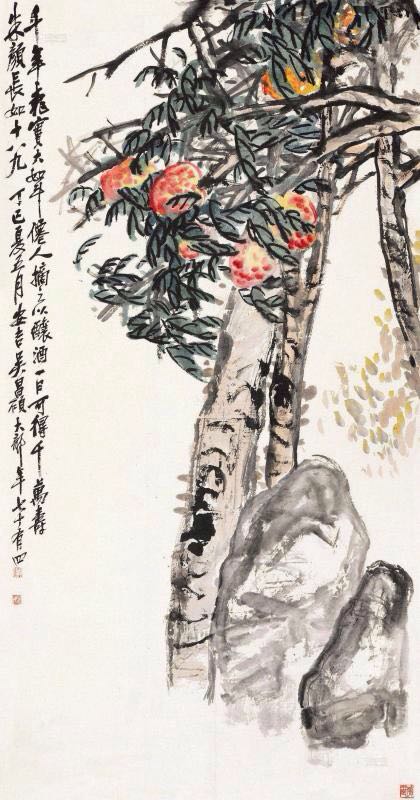 千年桃實大如斗僊人摘之以釀酒一日可得千萬壽
朱顏長如十八九 丁巳夏五月安吉吳昌碩大聾年七十有四